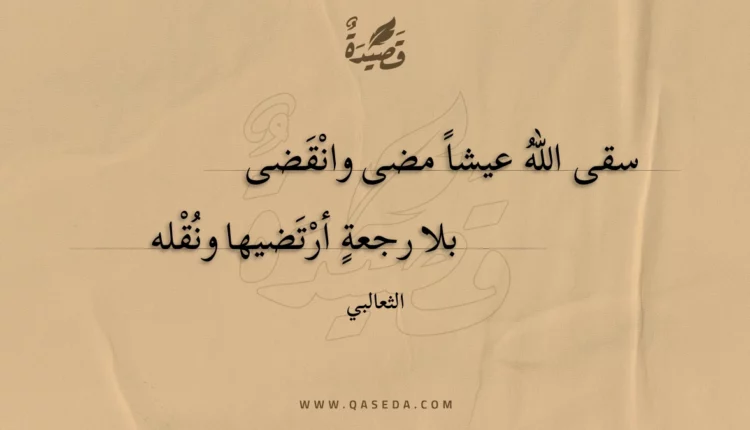 قَصِيدَةٌ
سقى اللهُ عيشاً مضى وانْقَضى
بلا رجعةٍ أرْتَضيها ونُقْله
الثعالبي
WWW.QASEDA.COM